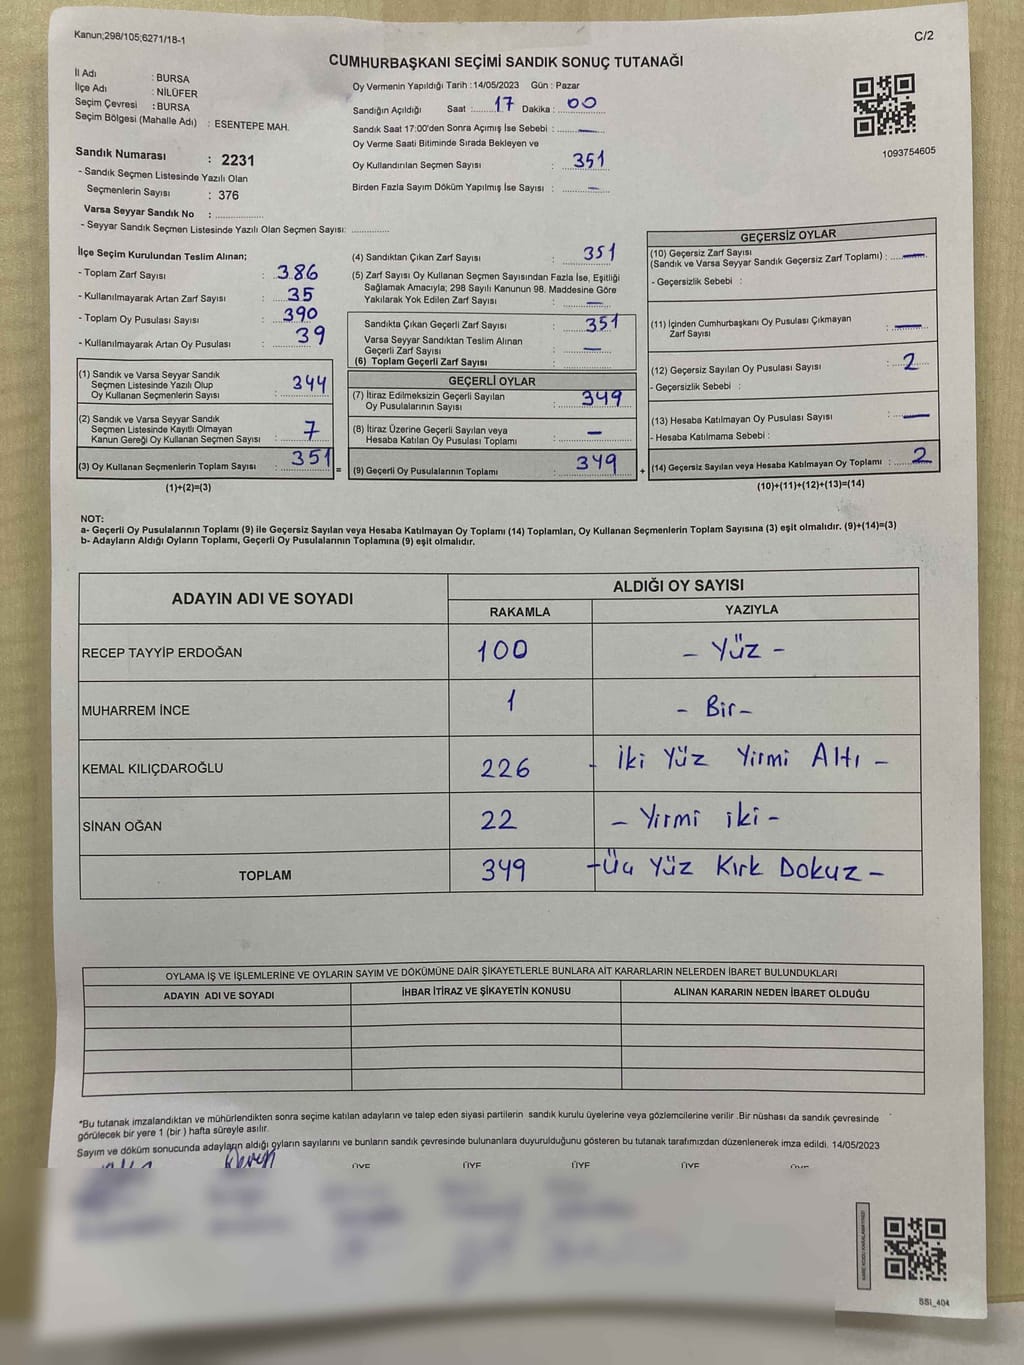 Kanun;298/105;6271/18-1
C/2
CUMHURBAŞKANI SEÇİMİ SANDIK SONUÇ TUTANAĞI
İl Adı : BURSA
İlçe Adı : NİLÜFER
Seçim Çevresi : BURSA
Seçim Bölgesi (Mahalle Adı) : ESENTEPE MAH.
Oy Vermenin Yapıldığı Tarih : 14/05/2023 Gün : Pazar
Sandığın Açıldığı Saat : 17 Dakika : 00
Sandık Saat 17:00'den Sonra Açımış İse Sebebi : —
Oy Verme Saati Bitiminde Sırada Bekleyen ve
Oy Kullandırılan Seçmen Sayısı : 351
Birden Fazla Sayım Döküm Yapılmış İse Sayısı : —
1093754605
Sandık Numarası : 2231
- Sandık Seçmen Listesinde Yazılı Olan
Seçmenlerin Sayısı : 376
Varsa Seyyar Sandık No :
- Seyyar Sandık Seçmen Listesinde Yazılı Olan Seçmen Sayısı:
İlçe Seçim Kurulundan Teslim Alınan;
- Toplam Zarf Sayısı : 386
- Kullanılmayarak Artan Zarf Sayısı : 35
- Toplam Oy Pusulası Sayısı : 390
- Kullanılmayarak Artan Oy Pusulası : 39
(1) Sandık ve Varsa Seyyar Sandık
Seçmen Listesinde Yazılı Olup
Oy Kullanan Seçmenlerin Sayısı : 344
(2) Sandık ve Varsa Seyyar Sandık
Seçmen Listesinde Kayıtlı Olmayan
Kanun Gereği Oy Kullanan Seçmen Sayısı : 7
(3) Oy Kullanan Seçmenlerin Toplam Sayısı : 351 =
(1)+(2)=(3)
(4) Sandıktan Çıkan Zarf Sayısı : 351
(5) Zarf Sayısı Oy Kullanan Seçmen Sayısından Fazla İse, Eşitliği
Sağlamak Amacıyla; 298 Sayılı Kanunun 98. Maddesine Göre
Yakılarak Yok Edilen Zarf Sayısı : —
Sandıkta Çıkan Geçerli Zarf Sayısı : 351
Varsa Seyyar Sandıktan Teslim Alınan
Geçerli Zarf Sayısı : —
(6) Toplam Geçerli Zarf Sayısı :
GEÇERLİ OYLAR
(7) İtiraz Edilmeksizin Geçerli Sayılan
Oy Pusulalarının Sayısı : 349
(8) İtiraz Üzerine Geçerli Sayılan veya
Hesaba Katılan Oy Pusulası Toplamı : —
(9) Geçerli Oy Pusulalarının Toplamı : 349 +
GEÇERSİZ OYLAR
(10) Geçersiz Zarf Sayısı
(Sandık ve Varsa Seyyar Sandık Geçersiz Zarf Toplamı) : —
- Geçersizlik Sebebi :
(11) İçinden Cumhurbaşkanı Oy Pusulası Çıkmayan
Zarf Sayısı : —
(12) Geçersiz Sayılan Oy Pusulası Sayısı : 2
- Geçersizlik Sebebi :
(13) Hesaba Katılmayan Oy Pusulası Sayısı : —
- Hesaba Katılmama Sebebi :
(14) Geçersiz Sayılan veya Hesaba Katılmayan Oy Toplamı : 2
(10)+(11)+(12)+(13)=(14)
NOT:
a- Geçerli Oy Pusulalarının Toplamı (9) ile Geçersiz Sayılan veya Hesaba Katılmayan Oy Toplamı (14) Toplamları, Oy Kullanan Seçmenlerin Toplam Sayısına (3) eşit olmalıdır. (9)+(14)=(3)
b- Adayların Aldığı Oyların Toplamı, Geçerli Oy Pusulalarının Toplamına (9) eşit olmalıdır.
ADAYIN ADI VE SOYADI
ALDIĞI OY SAYISI
RAKAMLA YAZIYLA
RECEP TAYYİP ERDOĞAN 100 - Yüz -
MUHARREM İNCE 1 - Bir -
KEMAL KILIÇDAROĞLU 226 - İki Yüz Yirmi Altı -
SİNAN OĞAN 22 - Yirmi iki -
TOPLAM 349 - Üç Yüz Kırk Dokuz -
OYLAMA İŞ VE İŞLEMLERİNE VE OYLARIN SAYIM VE DÖKÜMÜNE DAİR ŞİKAYETLERLE BUNLARA AİT KARARLARIN NELERDEN İBARET BULUNDUKLARI
ADAYIN ADI VE SOYADI İHBAR İTİRAZ VE ŞİKAYETİN KONUSU ALINAN KARARIN NEDEN İBARET OLDUĞU
*Bu tutanak imzalandıktan ve mühürlendikten sonra seçime katılan adayların ve talep eden siyasi partilerin sandık kurulu üyelerine veya gözlemcilerine verilir .Bir nüshası da sandık çevresinde
görülecek bir yere 1 (bir ) hafta süreyle asılır.
Sayım ve döküm sonucunda adayların aldığı oyların sayılarını ve bunların sandık çevresinde bulunanlara duyurulduğunu gösteren bu tutanak tarafımızdan düzenlenerek imza edildi. 14/05/2023
ÜYE ÜYE ÜYE ÜYE
SSİ_404